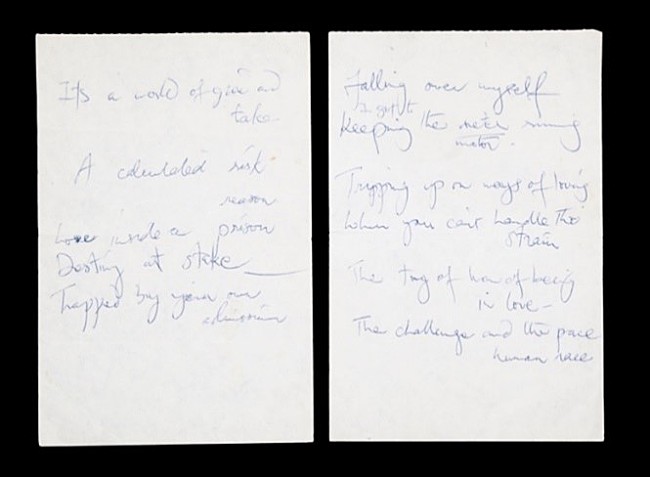 Its a world of give and
take
A calculated risk
reason
Love inside a prison
Destiny at stake
Trapped by your own
admission
Falling over myself
I got t
Keeping the meter running
motor
Tripping up on ways of loving
When you can't handle the
strain
The tug of war of being
in love
The challenge and the pace
human race